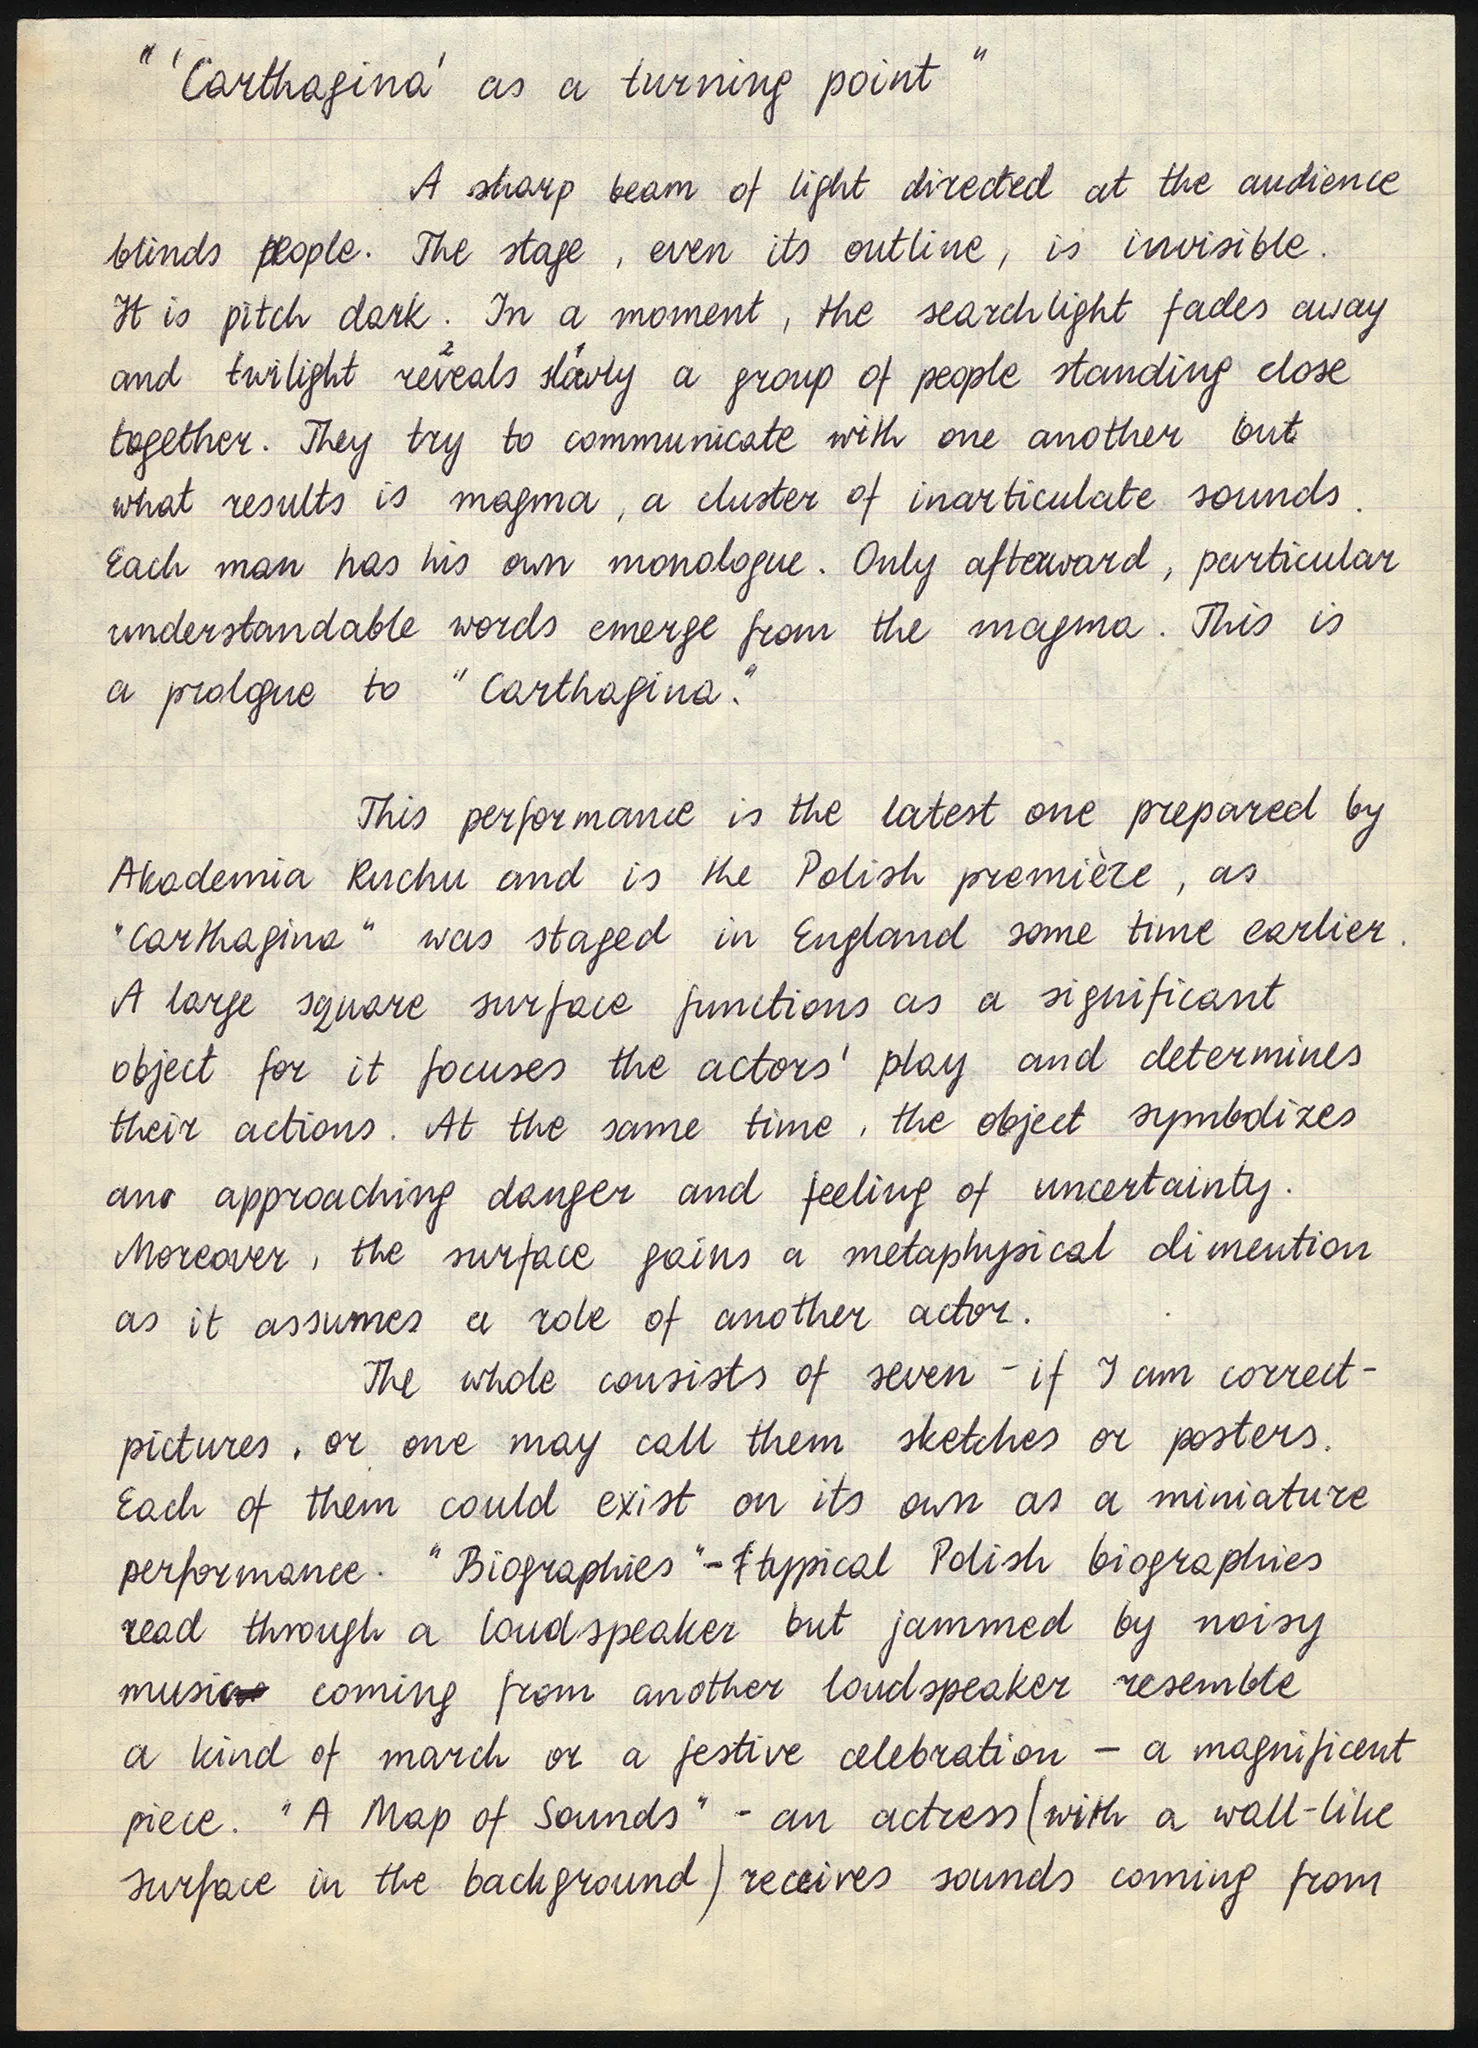 " 'Carthagina' as a turning point "
A sharp beam of light directed at the audience
blinds people. The stage, even its outline, is invisible.
It is pitch dark. In a moment, the searchlight fades away
2 1
and twilight reveals slowly a group of people standing close
together. They try to communicate with one another but
what results is magma, a cluster of inarticulate sounds.
Each man has his own monologue. Only afterward, particular
understandable words emerge from the magma. This is
a prologue to "Carthagina."
This performance is the latest one prepared by
Akademia Ruchu and is the Polish première, as
"Carthagina" was staged in England some time earlier.
A large square surface functions as a significant
object for it focuses the actors' play and determines
their actions. At the same time, the object symbolizes
an approaching danger and feeling of uncertainty.
Moreover, the surface gains a metaphysical dimention
as it assumes a role of another actor.
The whole consists of seven - if I am correct -
pictures, or one may call them sketches or posters.
Each of them could exist on its own as a miniature
performance. "Biographies" - typical Polish biographies
read through a loudspeaker but jammed by noisy
music coming from another loudspeaker resemble
a kind of march or a festive celebration - a magnificent
piece. "A Map of Sounds" - an actress (with a wall-like
surface in the background) receives sounds coming from